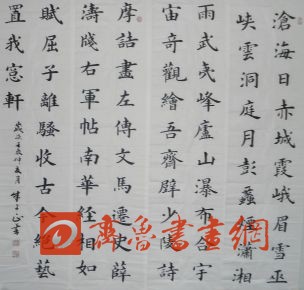 滄海日赤城霞峨眉雪巫
峽雲洞庭月彭蠡煙瀟湘
雨武夷峰廬山瀑布合宇
宙奇觀繪吾齋壁少陵詩
摩詰畫左傳文馬遷史薛
濤牋右軍帖南華經相如
賦屈子離騷收古今絕藝
置我窻軒
齊魯書畫網